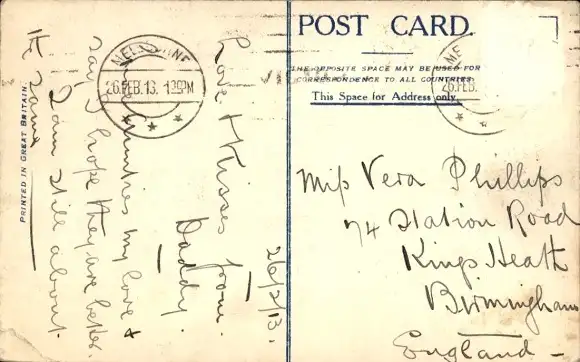 26/2/13.
Love & Kisses from
Daddy.
my love &
say I hope they are better.
I am still about
the same
PRINTED IN GREAT BRITAIN.
MELBOURNE
26.FEB.13. 1 30PM
POST CARD.
THE OPPOSITE SPACE MAY BE USED FOR
CORRESPONDENCE TO ALL COUNTRIES
This Space for Address only.
ME
26.FEB.
Miss Vera Phillips
74 Station Road
Kings Heath
Birmingham
England